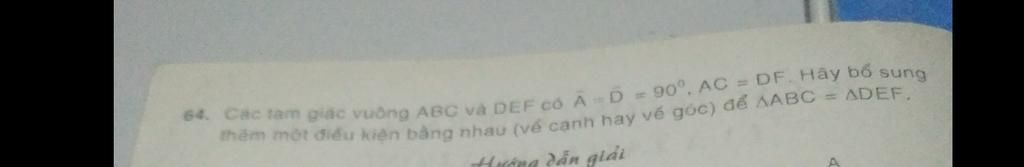 64. Các tam giác vuông ABC và DEF có Â = D̂ = 90⁰, AC = DF. Hãy bổ sung
thêm một điều kiện bằng nhau (về cạnh hay về góc) để ΔABC = ΔDEF.
Hướng dẫn giải
A